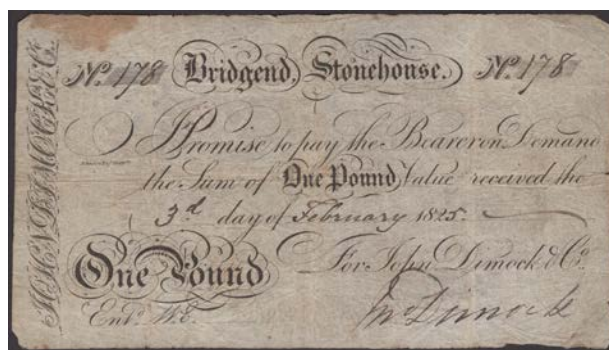 No. 178 Bridgend, Stonehouse. No. 178
I Promise to pay the Bearer on Demand
the Sum of One Pound Value received the
3d day of February 1825.
One Pound For John Dimock & Co.
Entd. Jno Dimock